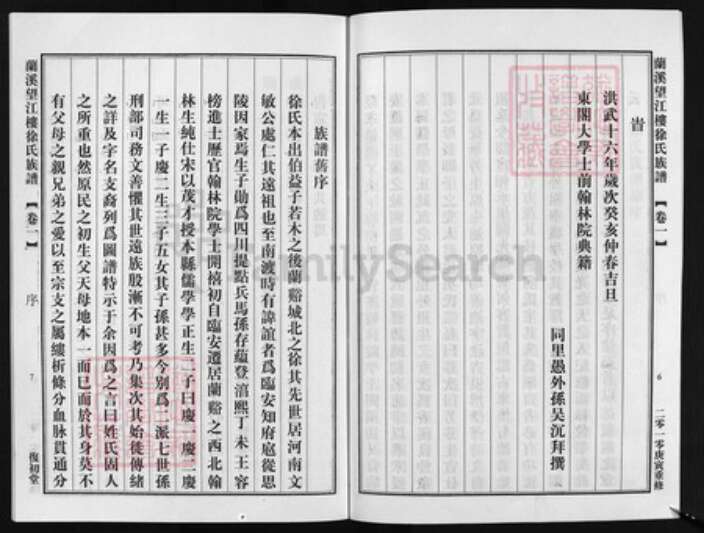 蘭溪望江樓徐氏族譜【卷一】
序
6
二零一零庚寅重修
旹
洪武十六年歲次癸亥仲春吉旦
東閣大學士前翰林院典籍
同里愚外孫吴沉拜撰
族譜舊序
徐氏本出伯益子若木之後蘭谿城北之徐其先世居河南文
敏公處仁其遠祖也至南渡時有諱誼者爲臨安知府扈從思
陵因家焉生子勛爲四川提點兵馬孫存蘊登淯熙丁未王容
榜進士歷官翰林院學士開禧初自臨安遷居蘭谿之西北翰
林生純仕宋以茂才授本縣儒學學正生二子曰慶一慶二慶
一生一子慶二生三子五女其子孫甚多今别爲二派七世孫
刑部司務文善懼其世遠族殷漸不可考乃集次其始徙傳緒
之詳及字名支裔列爲圖譜特示于余因爲之言曰姓氏固人
之所重也然原民之初生父天母地本一而已而於其身莫不
有父母之親兄弟之愛以至宗支之屬縷析條分血脉貫通分
蘭溪望江樓徐氏族譜【卷一】
序
7
復初堂
FamilySearch